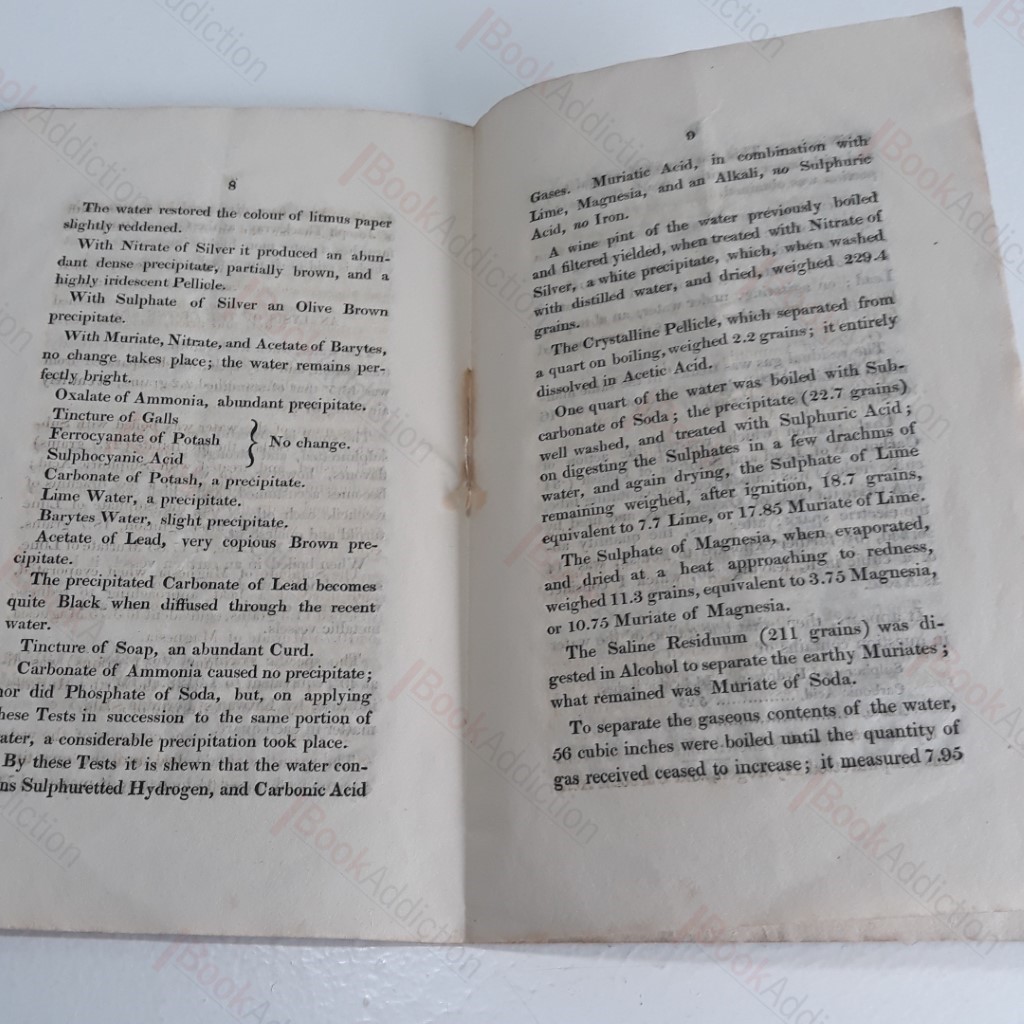 8
The water restored the colour of litmus paper
slightly reddened.
With Nitrate of Silver it produced an abun-
dant dense precipitate, partially brown, and a
highly iridescent Pellicle.
With Sulphate of Silver an Olive Brown
precipitate.
With Muriate, Nitrate, and Acetate of Barytes,
no change takes place; the water remains per-
fectly bright.
Oxalate of Ammonia, abundant precipitate.
Tincture of Galls
Ferrocyanate of Potash } No change.
Sulphocyanic Acid
Carbonate of Potash, a precipitate.
Lime Water, a precipitate.
Barytes Water, slight precipitate.
Acetate of Lead, very copious Brown pre-
cipitate.
The precipitated Carbonate of Lead becomes
quite Black when diffused through the recent
water.
Tincture of Soap, an abundant Curd.
Carbonate of Ammonia caused no precipitate;
nor did Phosphate of Soda, but, on applying
hese Tests in succession to the same portion of
ater, a considerable precipitation took place.
By these Tests it is shewn that the water con-
ns Sulphuretted Hydrogen, and Carbonic Acid
9
Gases. Muriatic Acid, in combination with
Lime, Magnesia, and an Alkali, no Sulphuric
Acid, no Iron.
A wine pint of the water previously boiled
and filtered yielded, when treated with Nitrate of
Silver, a white precipitate, which, when washed
with distilled water, and dried, weighed 229.4
grains.
The Crystalline Pellicle, which separated from
a quart on boiling, weighed 2.2 grains; it entirely
dissolved in Acetic Acid.
One quart of the water was boiled with Sub-
carbonate of Soda; the precipitate (22.7 grains)
well washed, and treated with Sulphuric Acid;
on digesting the Sulphates in a few drachms of
water, and again drying, the Sulphate of Lime
remaining weighed, after ignition, 18.7 grains,
equivalent to 7.7 Lime, or 17.85 Muriate of Lime.
The Sulphate of Magnesia, when evaporated,
and dried at a heat approaching to redness,
weighed 11.3 grains, equivalent to 3.75 Magnesia,
or 10.75 Muriate of Magnesia.
The Saline Residuum (211 grains) was di-
gested in Alcohol to separate the earthy Muriates;
what remained was Muriate of Soda.
To separate the gaseous contents of the water,
56 cubic inches were boiled until the quantity of
gas received ceased to increase; it measured 7.95
BookAddiction